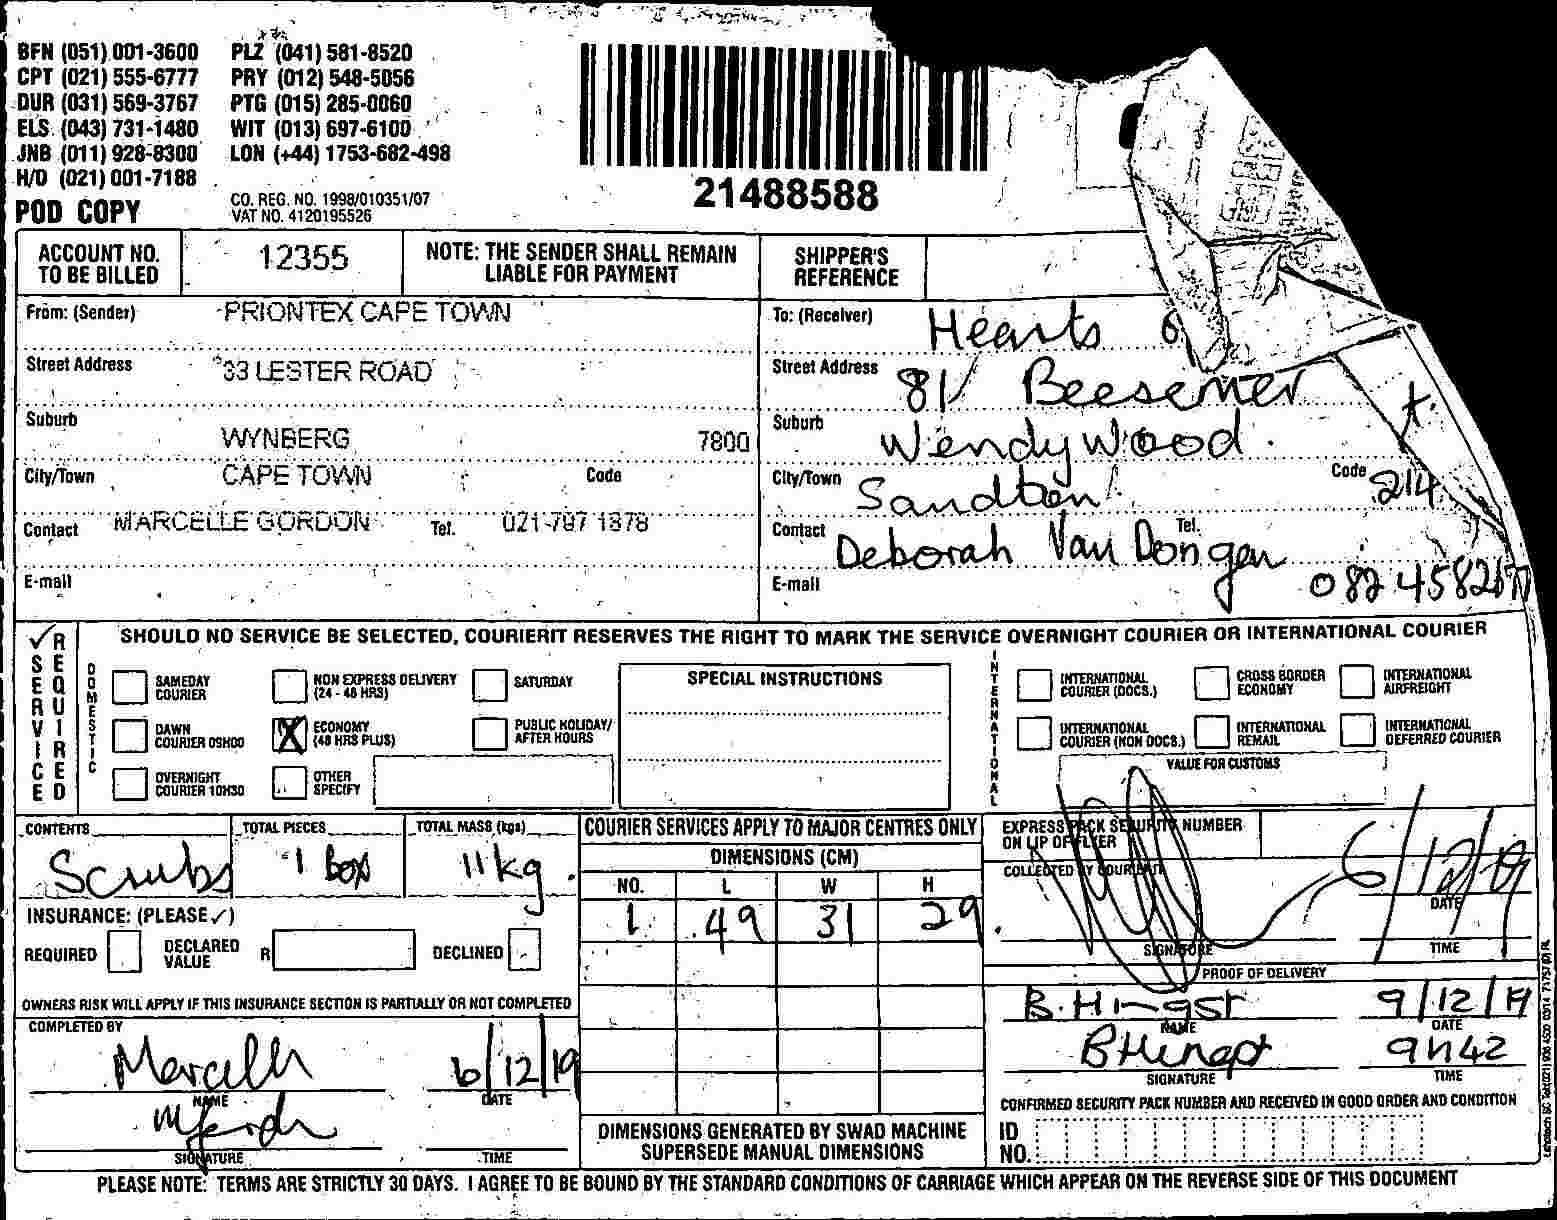 BFN (051) 001-3600 PLZ (041) 581-8520
CPT (021) 555-6777 PRY (012) 548-5056
DUR (031) 569-3767 PTG (015) 285-0060
ELS (043) 731-1480 WIT (013) 697-6100
JNB (011) 928-8300 LON (+44) 1753-682-498
H/O (021) 001-7188
CO. REG. NO. 1998/010351/07
POD COPY VAT NO. 4120195526
21488588
ACCOUNT NO. TO BE BILLED 12355 NOTE: THE SENDER SHALL REMAIN LIABLE FOR PAYMENT SHIPPER'S REFERENCE
From: (Sender) PRIONTEX CAPE TOWN
Street Address 33 LESTER ROAD
Suburb WYNBERG 7800
City/Town CAPE TOWN Code
Contact MARCELLE GORDON Tel. 021-797 1878
E-mail
To: (Receiver) Hearts
Street Address 81 Beesemer
Suburb Wendywood
City/Town Sandton Code 214
Contact Deborah Van Dongen Tel.
E-mail 082 4582
SERVICE REQUIRED
SHOULD NO SERVICE BE SELECTED, COURIERIT RESERVES THE RIGHT TO MARK THE SERVICE OVERNIGHT COURIER OR INTERNATIONAL COURIER
DOMESTIC
SAMEDAY COURIER NON EXPRESS DELIVERY (24 - 48 HRS) SATURDAY
DAWN COURIER 09H00 X ECONOMY (48 HRS PLUS) PUBLIC HOLIDAY/ AFTER HOURS
OVERNIGHT COURIER 10H30 OTHER SPECIFY
SPECIAL INSTRUCTIONS
INTERNATIONAL
INTERNATIONAL COURIER (DOCS.) CROSS BORDER ECONOMY INTERNATIONAL AIRFREIGHT
INTERNATIONAL COURIER (NON DOCS.) INTERNATIONAL REMAIL INTERNATIONAL DEFERRED COURIER
VALUE FOR CUSTOMS
CONTENTS TOTAL PIECES TOTAL MASS (kgs)
Scrubs 1 Box 11kg
INSURANCE: (PLEASE ✓)
REQUIRED DECLARED VALUE R DECLINED
OWNERS RISK WILL APPLY IF THIS INSURANCE SECTION IS PARTIALLY OR NOT COMPLETED
COMPLETED BY
Marcelle 6/12/19
NAME DATE
SIGNATURE TIME
COURIER SERVICES APPLY TO MAJOR CENTRES ONLY
DIMENSIONS (CM)
NO. L W H
1 49 31 29
DIMENSIONS GENERATED BY SWAD MACHINE
SUPERSEDE MANUAL DIMENSIONS
EXPRESS PACK SECURITY NUMBER
ON LIP OF FLYER
COLLECTED BY COURIERIT
6/12/19
DATE
SIGNATURE TIME
PROOF OF DELIVERY
B. Hingst 9/12/19
NAME DATE
BHingst 9h42
SIGNATURE TIME
CONFIRMED SECURITY PACK NUMBER AND RECEIVED IN GOOD ORDER AND CONDITION
ID NO.
PLEASE NOTE: TERMS ARE STRICTLY 30 DAYS. I AGREE TO BE BOUND BY THE STANDARD CONDITIONS OF CARRIAGE WHICH APPEAR ON THE REVERSE SIDE OF THIS DOCUMENT